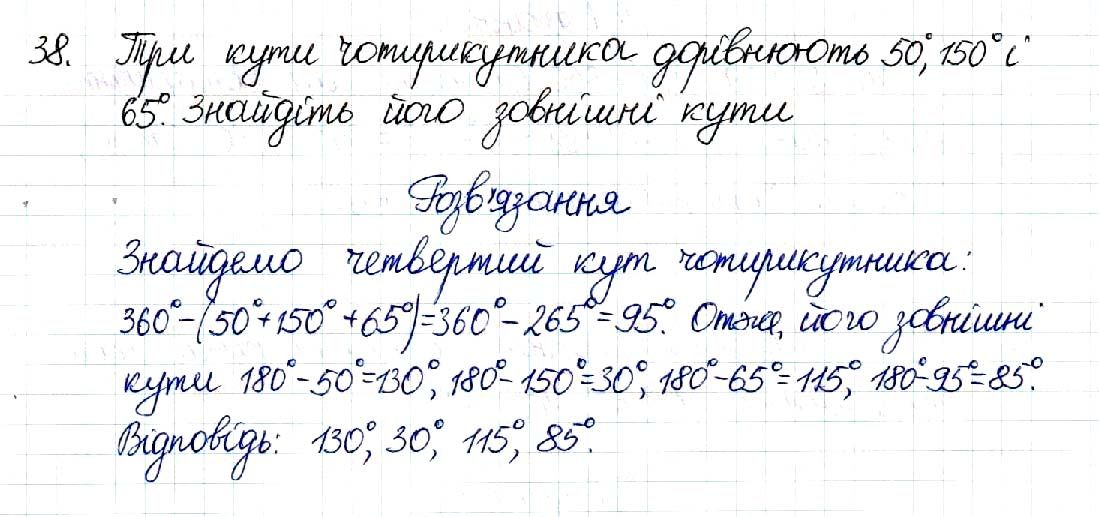 38. Три кути чотирикутника дорівнюють 50°, 150° і
65°. Знайдіть його зовнішні кути
Розв'язання
Знайдемо четвертий кут чотирикутника:
360°-(50°+150°+65°)=360°-265°=95°. Отже, його зовнішні
кути 180°-50°=130°, 180°-150°=30°, 180°-65°=115°, 180°-95°=85°.
Відповідь: 130°, 30°, 115°, 85°.